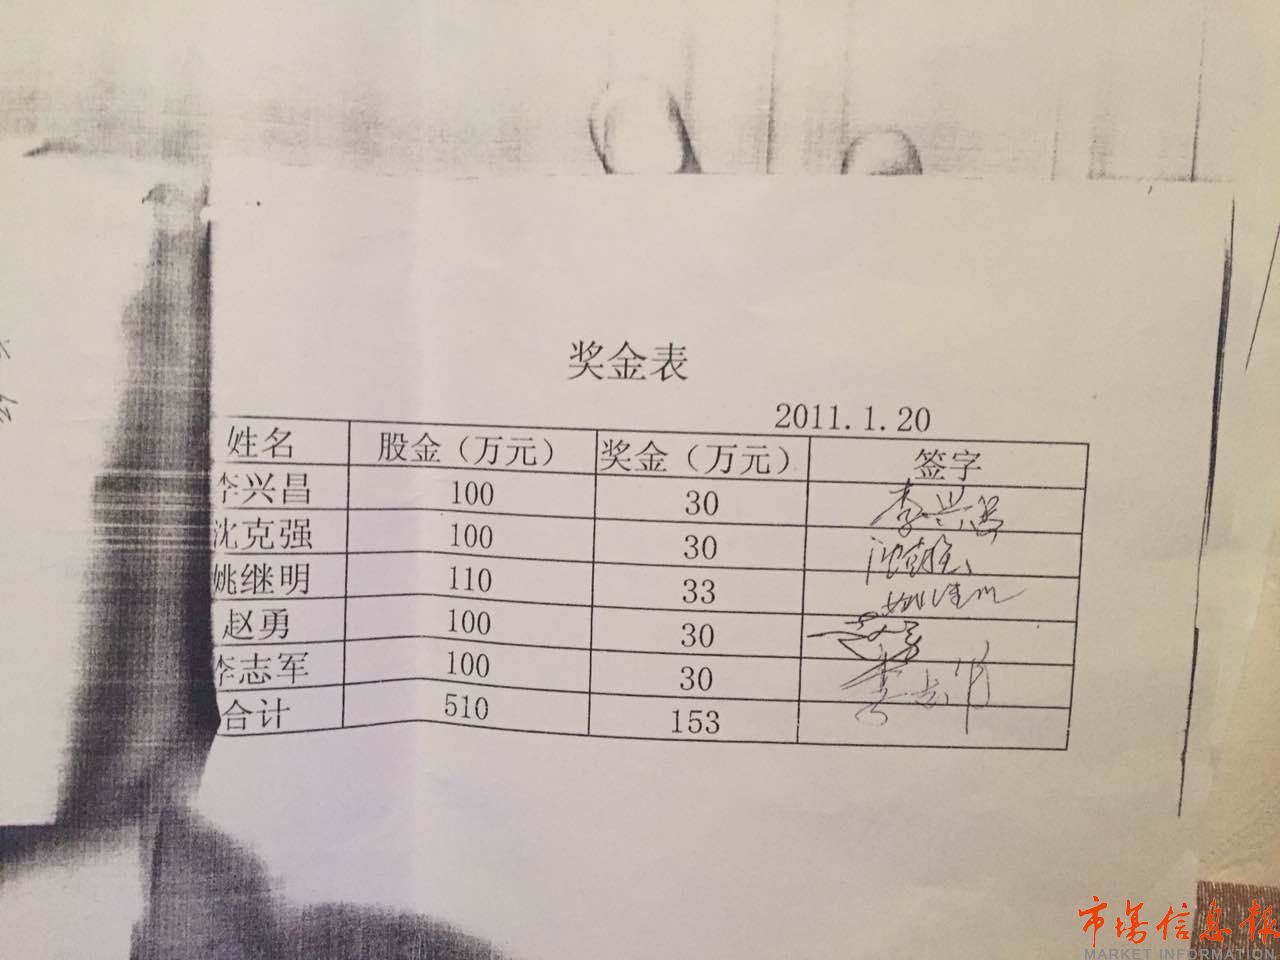 奖金表
2011.1.20
姓名 股金（万元） 奖金（万元） 签字
李兴昌 100 30 李兴昌
沈克强 100 30 沈克强
姚继明 110 33 姚继明
赵勇 100 30
李志军 100 30 李志军
合计 510 153
市场信息报
MARKET INFORMATION